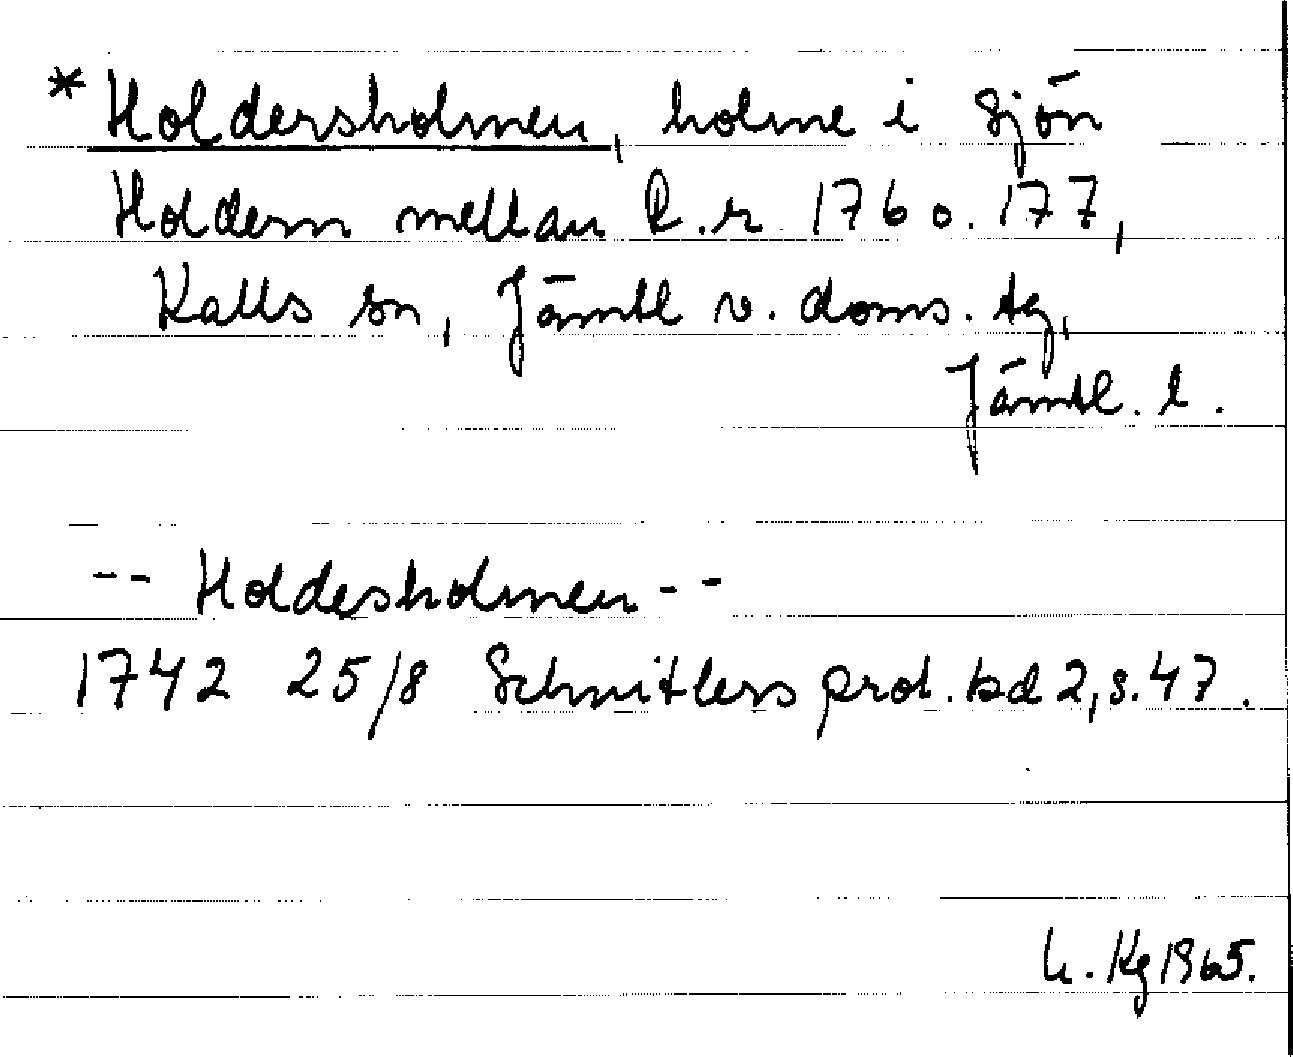 *Holdersholmen, holme i sjön
Holdern mellan R.r 176 o. 177,
Kalls sn, Jämtl v. doms. tg,
Jämtl. l.
-- Holdesholmen --
1742 25/8 Schnitlers prot. bd 2, s. 47.
h. Kg 1965.